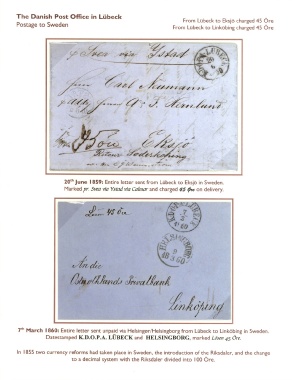 The Danish Post Office in Lübeck
Postage to Sweden
From Lübeck to Eksjö charged 45 Öre
From Lübeck to Linköbing charged 45 Öre
pr Svea via Ystad
K.D.O.P.A. LÜBECK
Herr Carl Neumann
Eksjö
Söderköping
20th June 1859: Entire letter sent from Lübeck to Eksjö in Sweden.
Marked pr. Svea via Ystad via Calmar and charged 45 Öre on delivery.
K.D.O.P.A. LÜBECK
HELSINGBORG
9 3 60
An die
Linköping
7th March 1860: Entire letter sent unpaid via Helsingør/Helsingborg from Lübeck to Linköbing in Sweden.
Datestamped K.D.O.P.A. LÜBECK and HELSINGBORG, marked Lösen 45 Öre.
In 1855 two currency reforms had taken place in Sweden, the introduction of the Riksdaler, and the change
to a decimal system with the Riksdaler divided into 100 Öre.